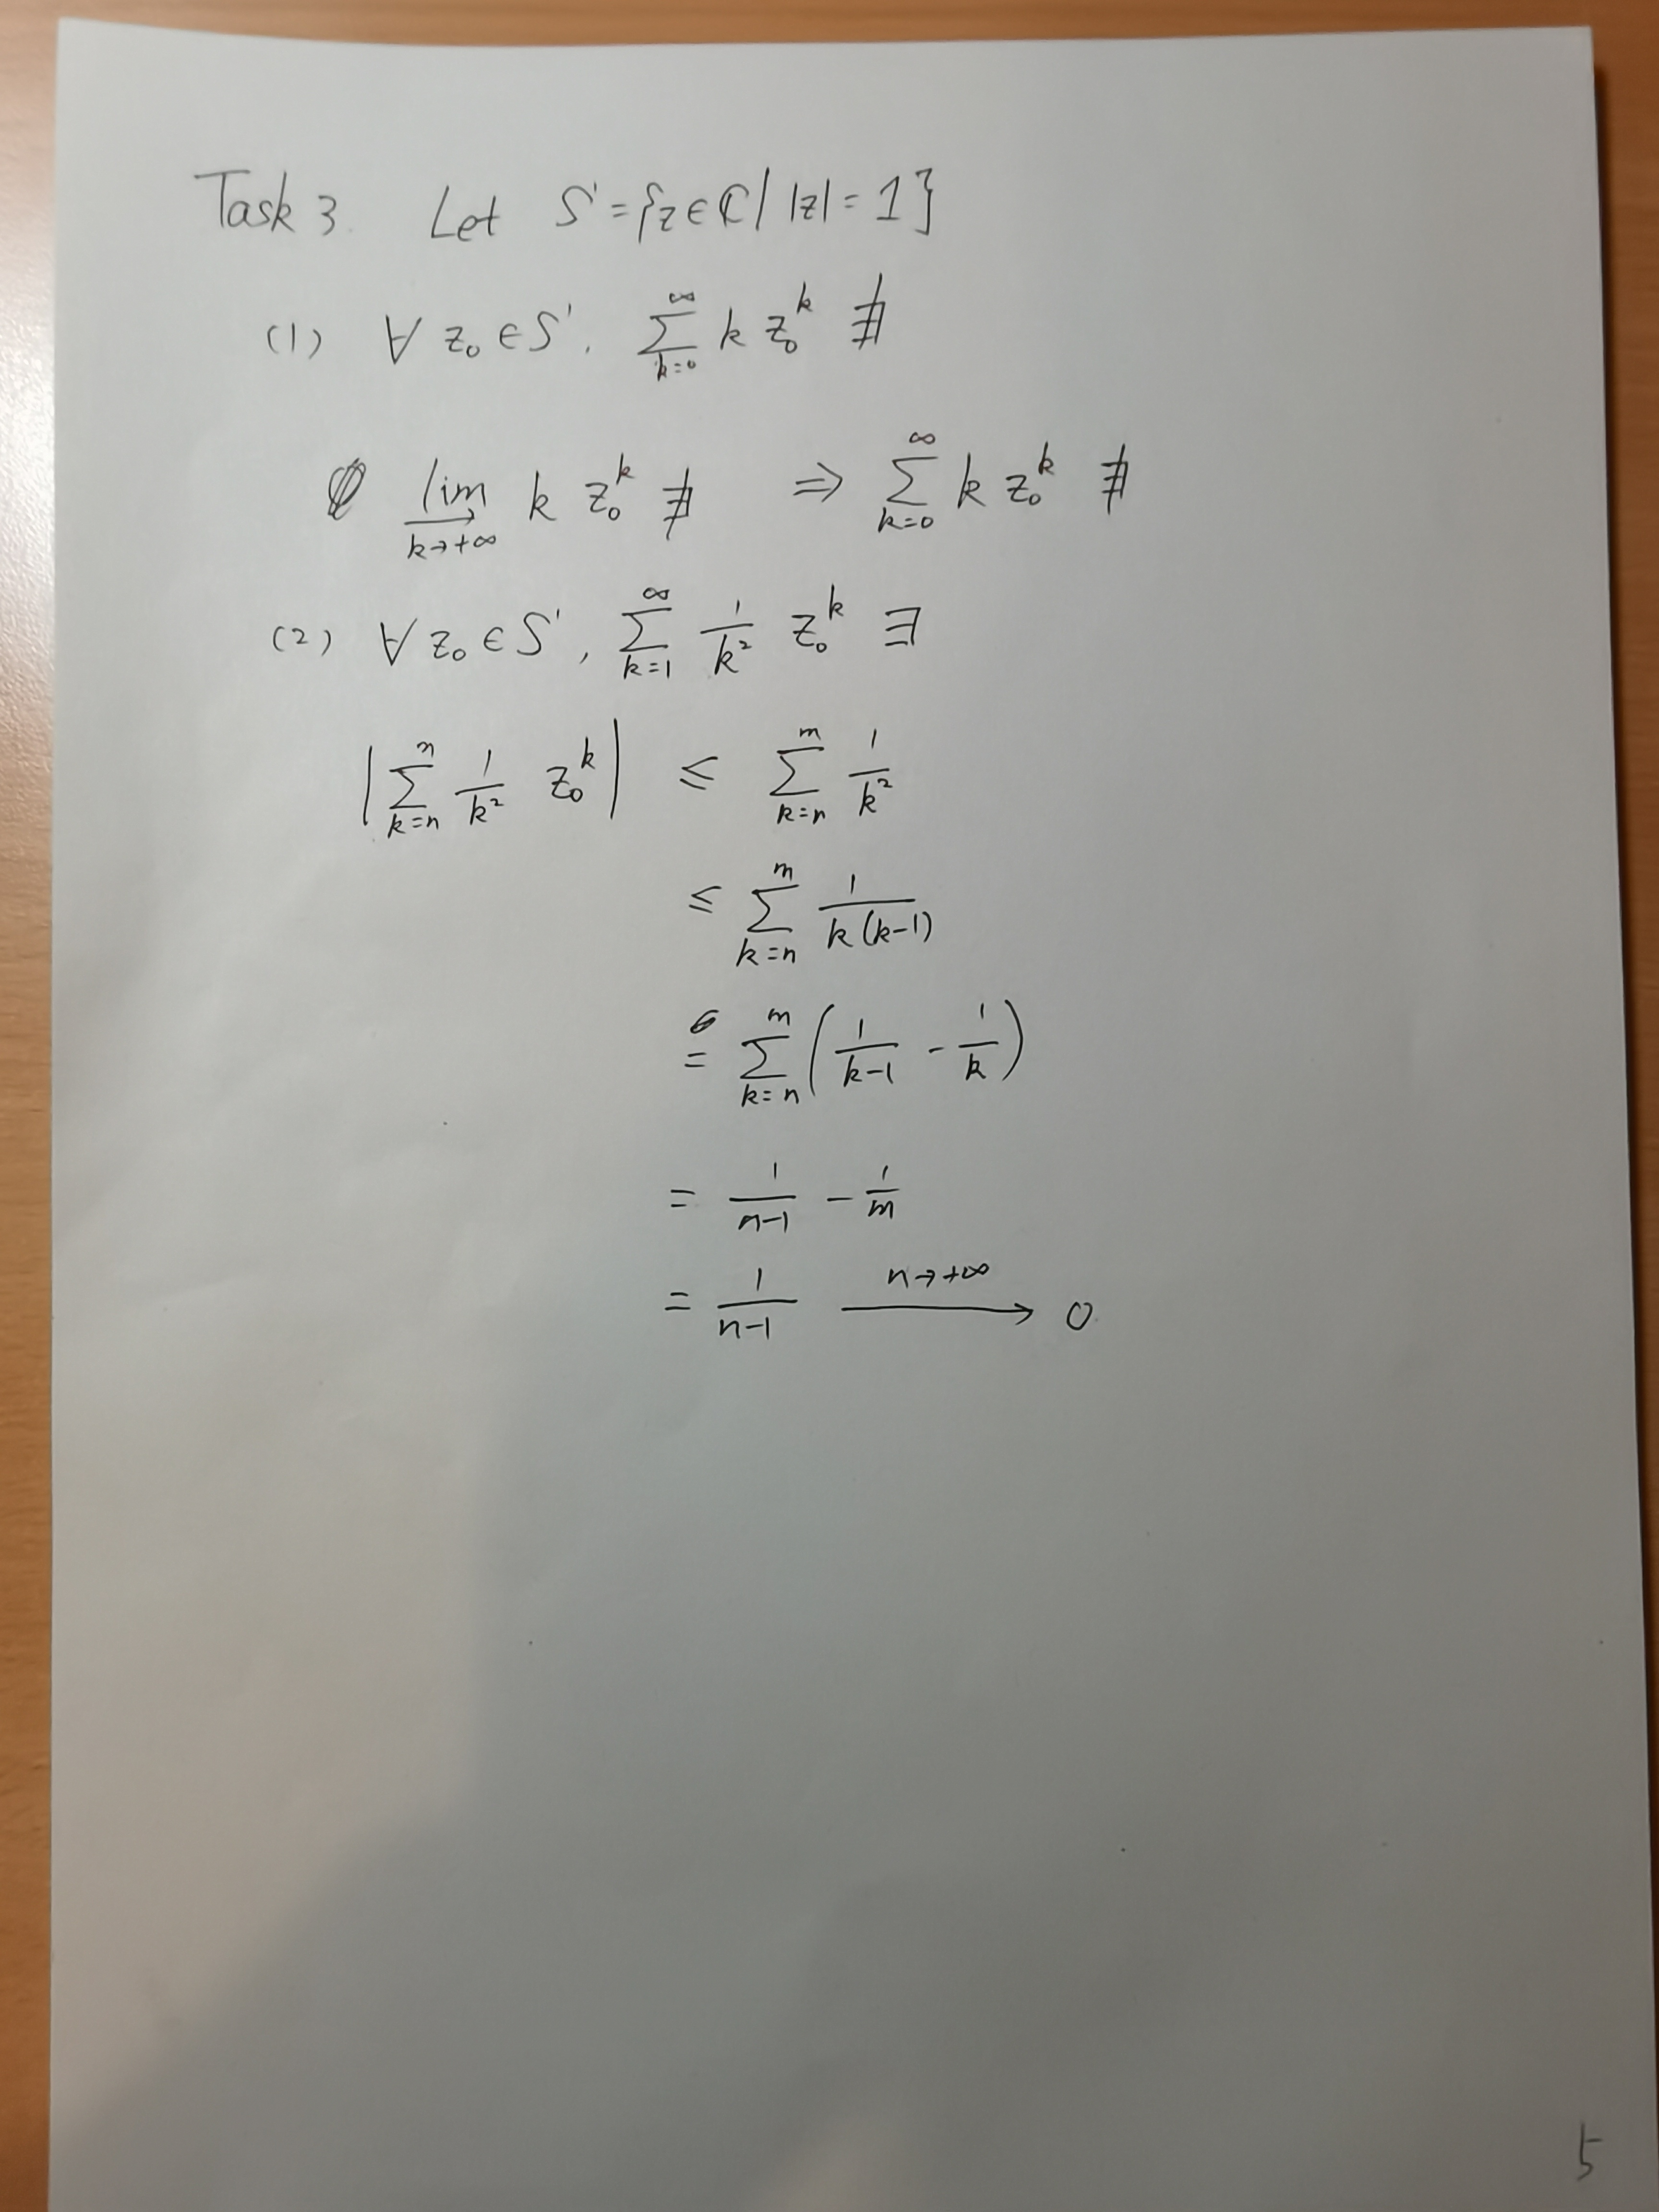 Task 3. Let S¹ = {z ∈ ℂ | |z| = 1}
(1) ∀ z₀ ∈ S¹, ∑_{k=0}^{∞} k z₀^k ∄
lim_{k→+∞} k z₀^k ∄ ⇒ ∑_{k=0}^{∞} k z₀^k ∄
(2) ∀ z₀ ∈ S¹, ∑_{k=1}^{∞} 1/k² z₀^k ∃
|∑_{k=n}^{n} 1/k² z₀^k| ≤ ∑_{k=n}^{m} 1/k²
≤ ∑_{k=n}^{m} 1/(k(k-1))
= ∑_{k=n}^{m} (1/(k-1) - 1/k)
= 1/(n-1) - 1/m
= 1/(n-1) →^{n→+∞} 0
5